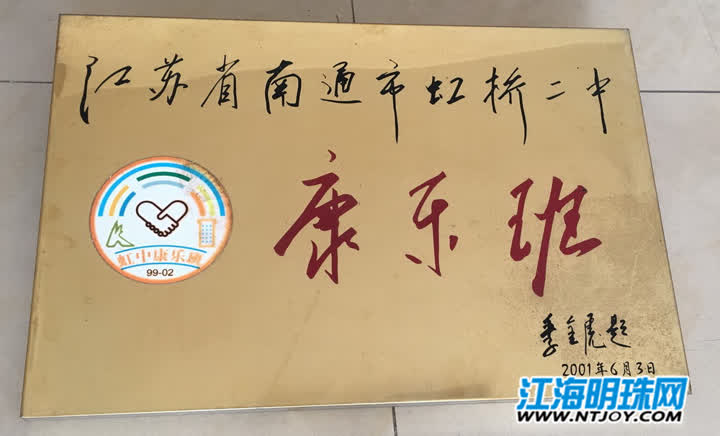 江苏省南通市虹桥二中
康乐班
虹中康乐班
99-02
季金虎题
2001年6月3日
江海明珠网
WWW.NTJOY.COM